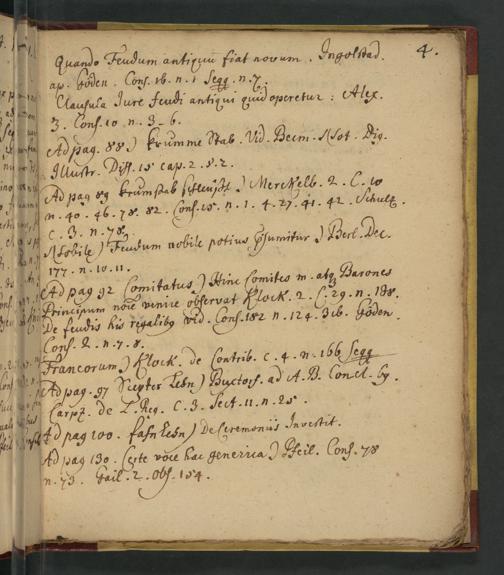 4.
Quando Feudum antiquu fiat novum. Ingolstad.
ap. Göden. Cons. 16. n. 1 Seqq. n. 7.
Clausula Jure feudi antiqui quid operetur: Alex.
3. Cons. 10 n. 3_6.
Ad pag. 88) Krumme Stab. Vid. Beim. Not. Dig.
Illustr. Diss. 15 cap. 2. §. 2.
Ad pag 89 Krumstab ) Merckelb. 2. C. 10
n. 40. 46. 78. 82. Cons. 15. n. 1. 4. 27. 41. 42. Schultz.
c. 3. n. 78.
Nobile) Feudum nobile potius psumitur) Berl. Dec.
177. n. 10. 11.
Ad pag 92 Comitatus) Hinc Comites m. atq Barones
Principum noie venire observat Klock. 2. C. 29. n. 188.
De feudis his regalibq vid. Cons. 182 n. 124. 316. Göden.
Cons. 2. n. 7. 8.
Francorum) Klock. de Contrib. c. 4. n. 166 Seqq
Ad pag. 97 Scepter Lehn) ad A. B. Concl. 69.
Carpz. de L. Reg. C. 3. Sect. 11. n. 25.
Ad pag 100. fahn Lehn) De Ceremoniis Investit.
Ad pag 130. Certe voce hac generica) Pfeil. Cons. 78
n. 73. Gail. 2. Obs. 154.